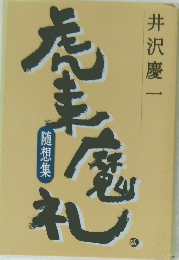 井沢慶一
虎来魔礼
随想集